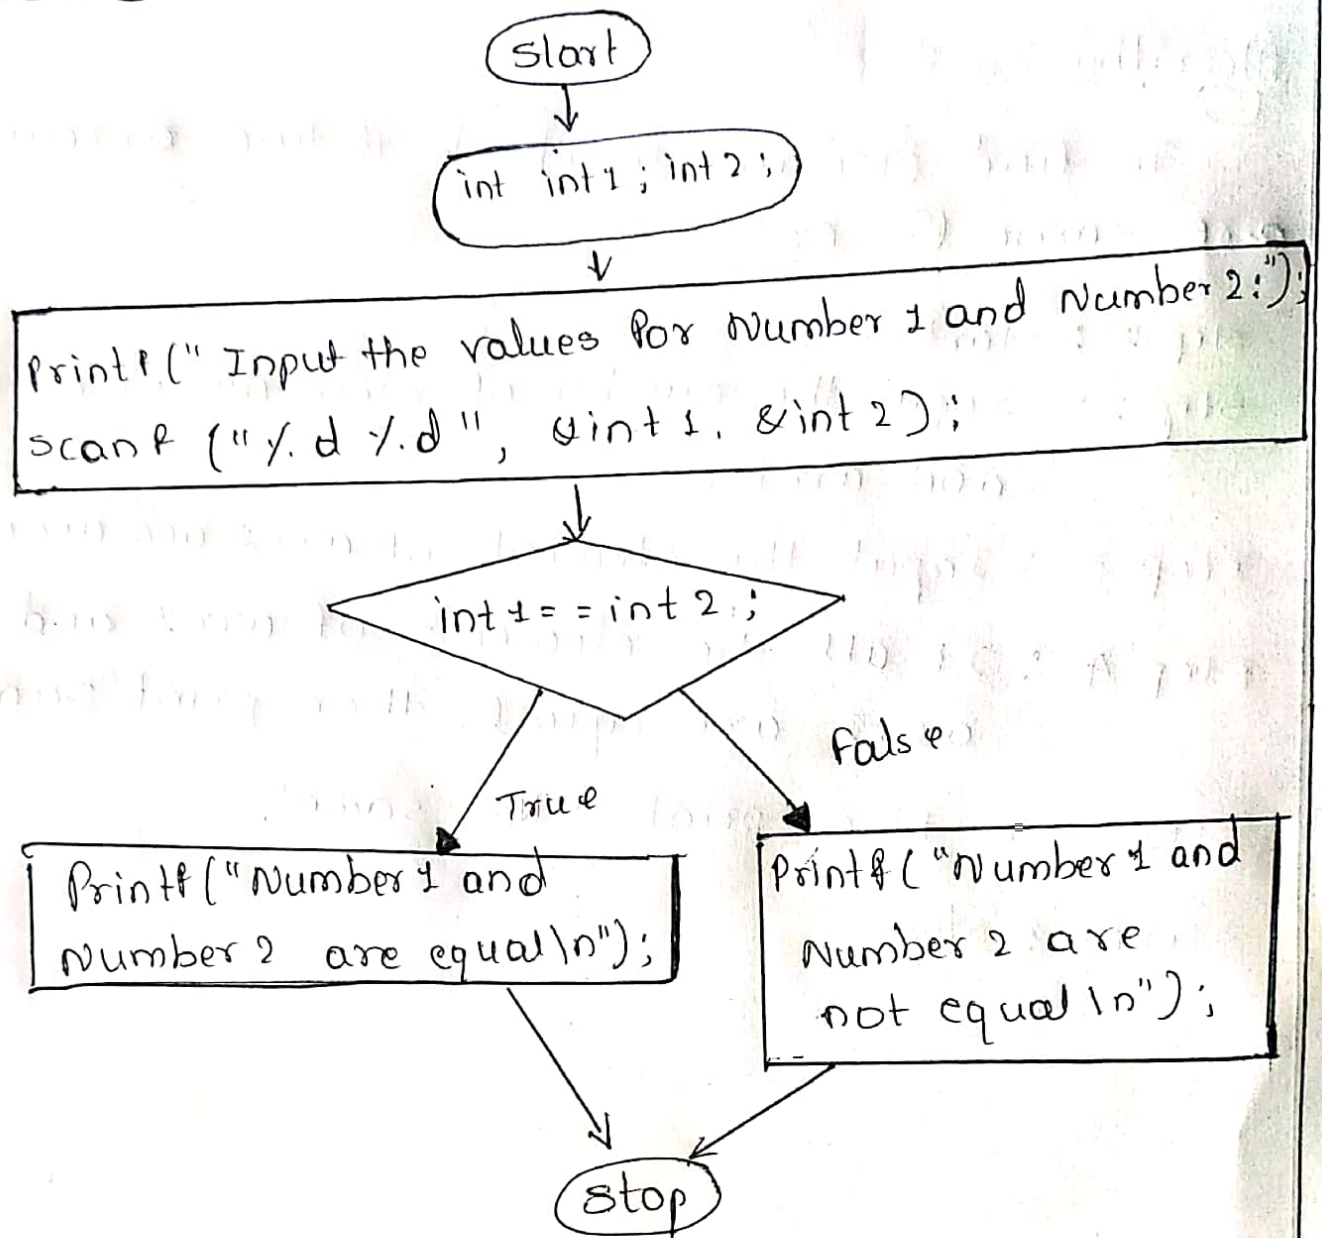 Start
int int1 ; int2 ;
Printf(" Input the values for Number 1 and Number 2:");
scanf ("%d %d", &int1, &int2);
int1 == int2 ;
True
False
Printf("Number 1 and
Number 2 are equal\n");
Printf("Number 1 and
Number 2 are
not equal\n");
stop